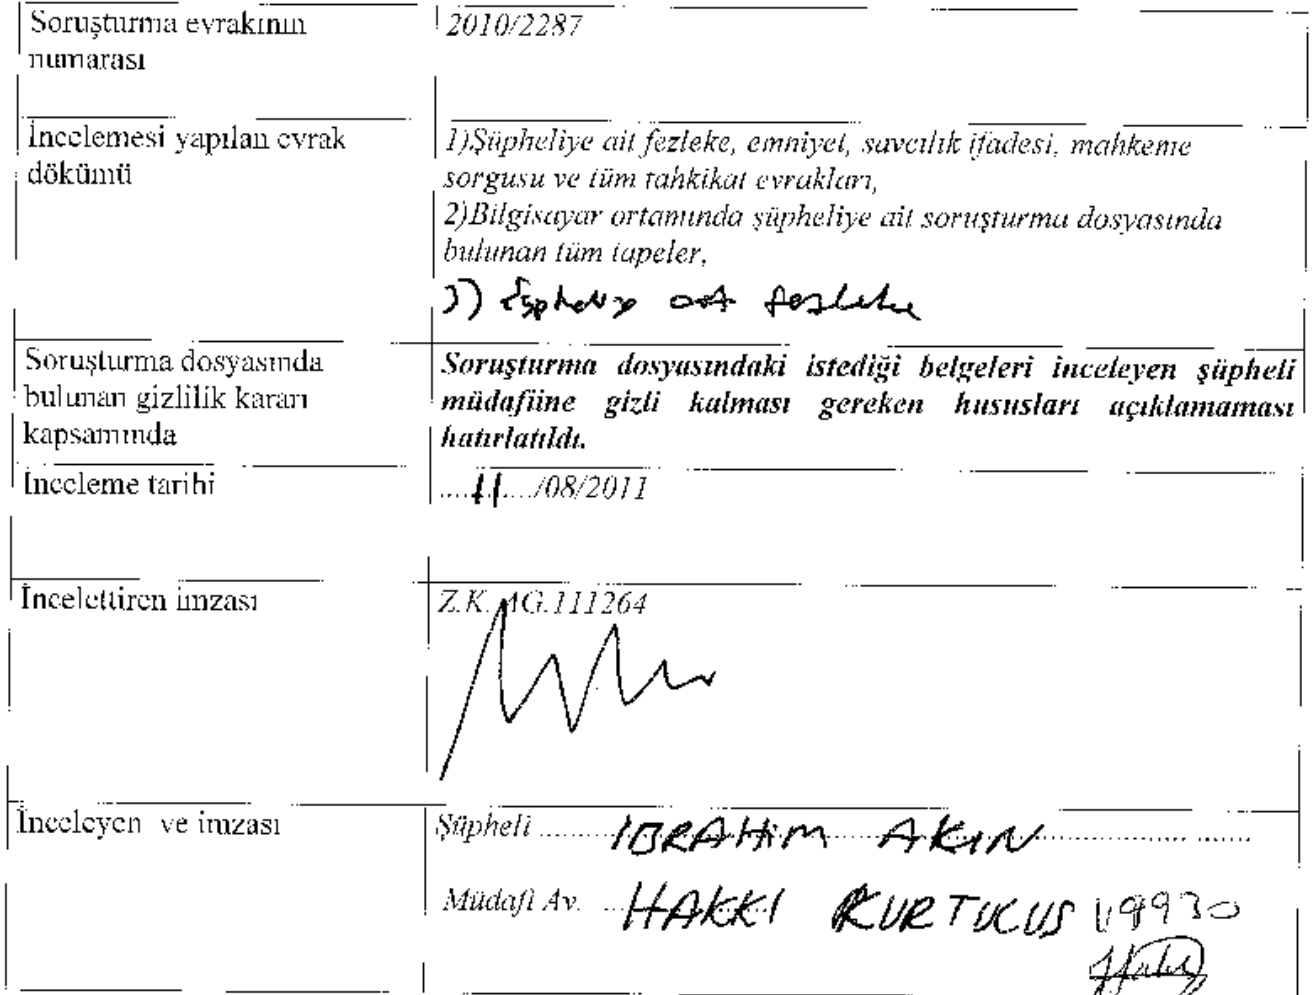 Soruşturma evrakının
numarası
2010/2287
İncelemesi yapılan evrak
dökümü
1)Şüpheliye ait fezleke, emniyet, savcılık ifadesi, mahkeme
sorgusu ve tüm tahkikat evrakları,
2)Bilgisayar ortamında şüpheliye ait soruşturma dosyasında
bulunan tüm tapeler,
3) Şüpheliye ait fezleke
Soruşturma dosyasında
bulunan gizlilik kararı
kapsamında
Soruşturma dosyasındaki istediği belgeleri inceleyen şüpheli
müdafiine gizli kalması gereken hususları açıklamaması
hatırlatıldı.
İnceleme tarihi
....11..../08/2011
İncelettiren imzası
Z.K. AG.111264
İnceleyen ve imzası
Şüpheli ......... İBRAHİM AKIN ......................
Müdafi Av. ... HAKKI KURTULUS 19930